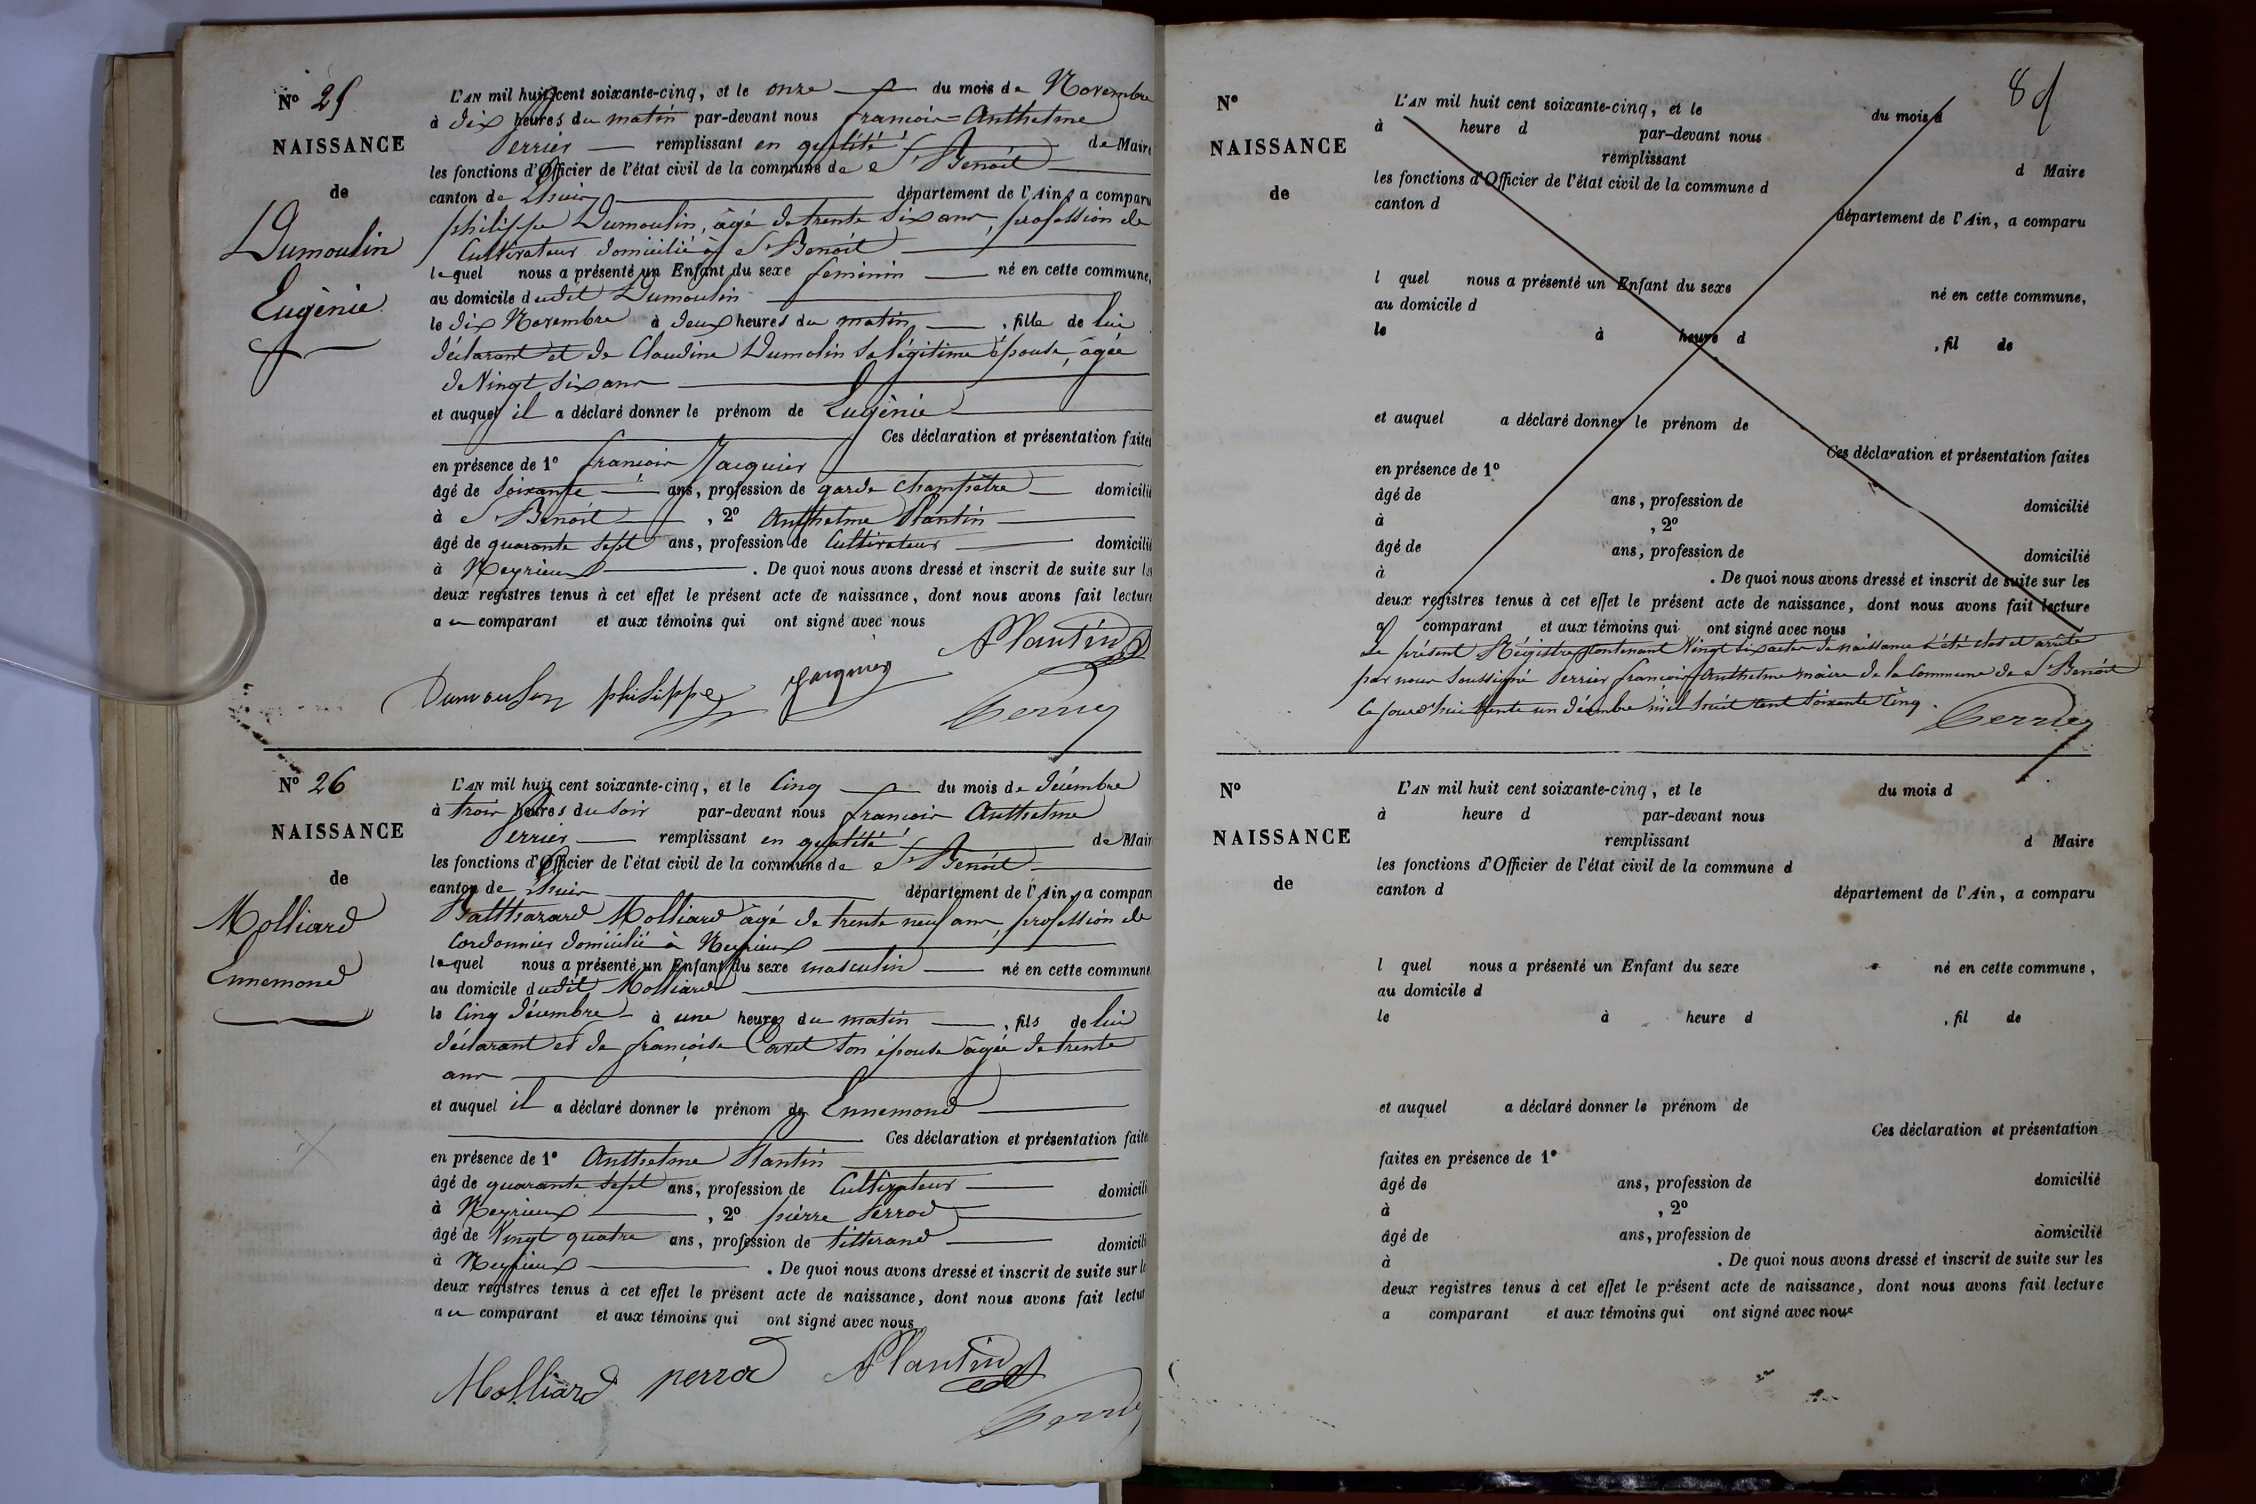 N° 25
NAISSANCE
de
Dumoulin
Eugènie
L'AN mil huit cent soixante-cinq, et le onze du mois de Novembre
à dix heures du matin par-devant nous francois-Anthelme
Perrier remplissant en qualité de Maire
les fonctions d'Officier de l'état civil de la commune de St Benoit
canton de Lhuis département de l'Ain, a comparu
philippe Dumoulin, âgé de trente six ans, profession de
Cultivateur domicilié à St Benoit
lequel nous a présenté un Enfant du sexe feminin né en cette commune,
au domicile dudit Dumoulin
le dix Novembre à deux heures du matin, fille de lui
déclarant et de Claudine Dumolin sa légitime épouse, âgée
de Vingt six ans
et auquel il a déclaré donner le prénom de Eugènie
Ces déclaration et présentation faites
en présence de 1° francois Jacquier
âgé de soixante ans, profession de garde champêtre domicilié
à St Benoit, 2° Anthelme Plantin
âgé de quarante sept ans, profession de Cultivateur domicilié
à Meyrieux. De quoi nous avons dressé et inscrit de suite sur les
deux registres tenus à cet effet le présent acte de naissance, dont nous avons fait lecture
au comparant et aux témoins qui ont signé avec nous
Plantin
Dumoulin philippe Jacquier
Perrier
N° 26
NAISSANCE
de
Molliard
Ennemond
L'AN mil huit cent soixante-cinq, et le Cinq du mois de décembre
à trois heures du soir par-devant nous francois Anthelme
Perrier remplissant en qualité de Mair
les fonctions d'Officier de l'état civil de la commune de St Benoit
canton de Lhuis département de l'Ain, a compar
Balthazard Molliard âgé de trente neuf ans, profession de
Cordonnier domicilié à Meyrieux
lequel nous a présenté un Enfant du sexe masculin né en cette commune
au domicile dudit Molliard
le Cinq décembre à une heures du matin, fils de lui
déclarant et de françoise Cavet son épouse âgée de trente
ans
et auquel il a déclaré donner le prénom de Ennemond
Ces déclaration et présentation faite
en présence de 1° Anthelme Plantin
âgé de quarante sept ans, profession de Cultivateur domicili
à Meyrieux, 2° pierre Perrod
âgé de Vingt quatre ans, profession de tisserand domicili
à Meyrieux. De quoi nous avons dressé et inscrit de suite sur le
deux registres tenus à cet effet le présent acte de naissance, dont nous avons fait lectur
au comparant et aux témoins qui ont signé avec nous
Molliard perrod Plantin
Perrier
N°
NAISSANCE
de
L'AN mil huit cent soixante-cinq, et le du mois d
à heure d par-devant nous
remplissant d Maire
les fonctions d'Officier de l'état civil de la commune d
canton d département de l'Ain, a comparu
l quel nous a présenté un Enfant du sexe né en cette commune,
au domicile d
le à heure d, fil de
et auquel a déclaré donner le prénom de
Ces déclaration et présentation faites
en présence de 1°
âgé de ans, profession de domicilié
à, 2°
âgé de ans, profession de domicilié
à. De quoi nous avons dressé et inscrit de suite sur les
deux registres tenus à cet effet le présent acte de naissance, dont nous avons fait lecture
a comparant et aux témoins qui ont signé avec nous
Le présent Régistre contenant Vingt six actes de naissance à été clos et arrêté
par nous soussigné Perrier françois Anthelme maire de la Commune de St Benoit
Ce jourd'hui trente un décembre mil huit cent soixante Cinq.
Perrier
N°
NAISSANCE
de
L'AN mil huit cent soixante-cinq, et le du mois d
à heure d par-devant nous
remplissant d Maire
les fonctions d'Officier de l'état civil de la commune d
canton d département de l'Ain, a comparu
l quel nous a présenté un Enfant du sexe né en cette commune,
au domicile d
le à heure d, fil de
et auquel a déclaré donner le prénom de
Ces déclaration et présentation
faites en présence de 1°
âgé de ans, profession de domicilié
à, 2°
âgé de ans, profession de domicilié
à. De quoi nous avons dressé et inscrit de suite sur les
deux registres tenus à cet effet le présent acte de naissance, dont nous avons fait lecture
a comparant et aux témoins qui ont signé avec nous